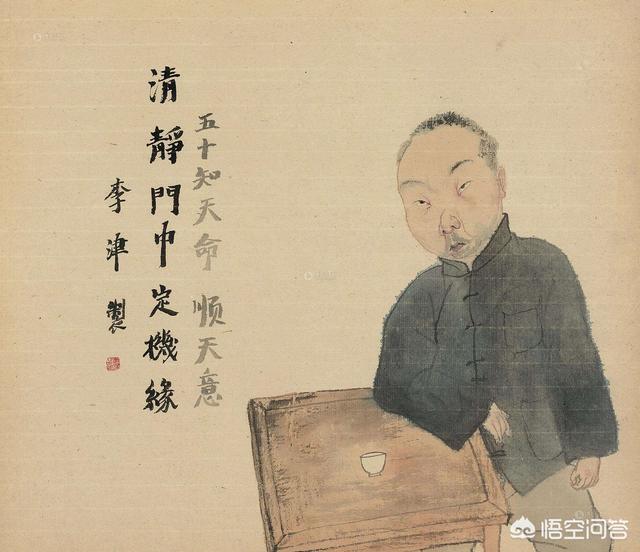 五十知天命 顺天意
清靜門中定機緣
李津 製
悟空问答